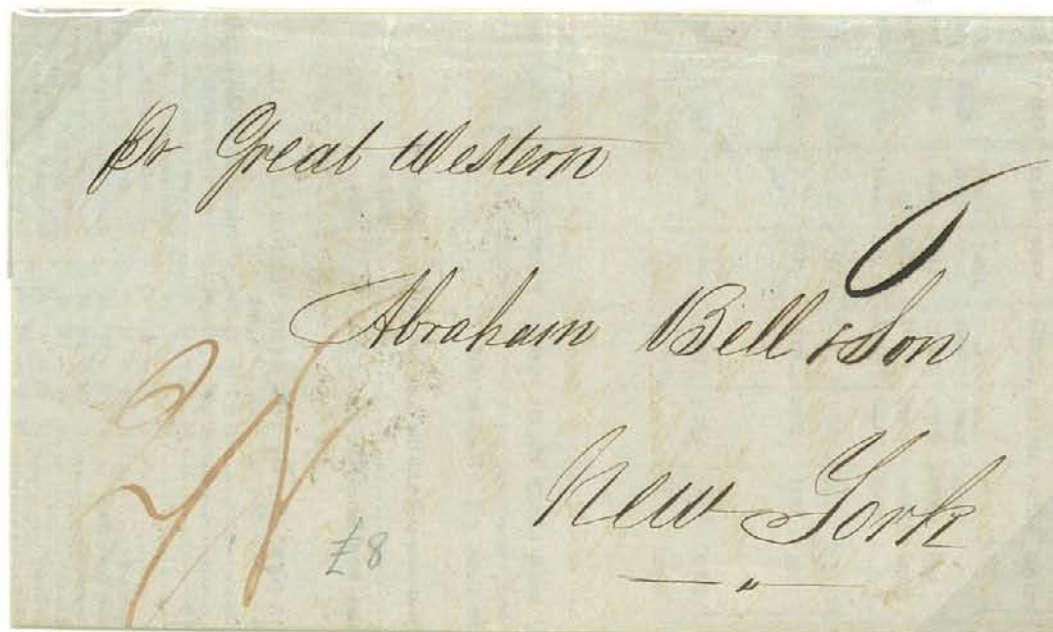 Pr Great Western
Abraham Bell & Son
New York
£8